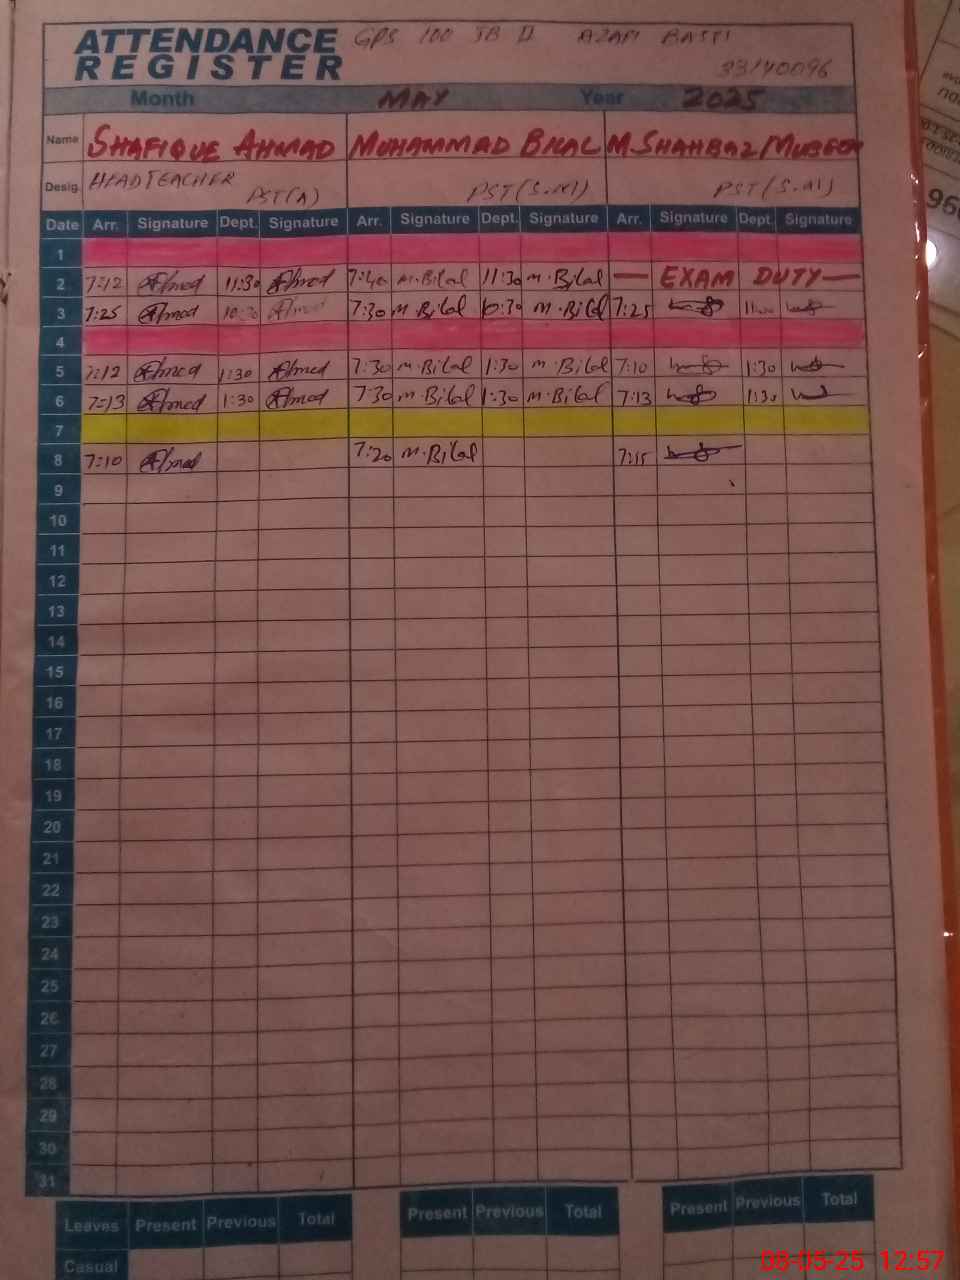 ATTENDANCE GPS 100 JB II AZAFI BASTI
REGISTER 33140096
Month MAY Year 2025
Name SHAFIQUE AHMAD MUHAMMAD BILAL M.SHAHBAZ MUBEEN
Desig. HEADTEACHER PST(A) PST(S.M) PST(S.M)
Date Arr. Signature Dept. Signature Arr. Signature Dept. Signature Arr. Signature Dept. Signature
1
2 7:12 Ahmad 11:30 Ahmad 7:40 M.Bilal 11:30 M.Bilal — EXAM DUTY —
3 7:25 Ahmad 10:30 Ahmad 7:30 M.Bilal 10:30 M.Bilal 7:25
4
5 7:12 Ahmad 1:30 Ahmad 7:30 M.Bilal 1:30 M.Bilal 7:10 1:30
6 7:13 Ahmad 1:30 Ahmad 7:30 M.Bilal 1:30 M.Bilal 7:13 1:30
7
8 7:10 Ahmad 7:20 M.Bilal 7:15
9
10
11
12
13
14
15
16
17
18
19
20
21
22
23
24
25
26
27
28
29
30
31
Leaves Present Previous Total Present Previous Total Present Previous Total
Casual
08-05-25 12:57